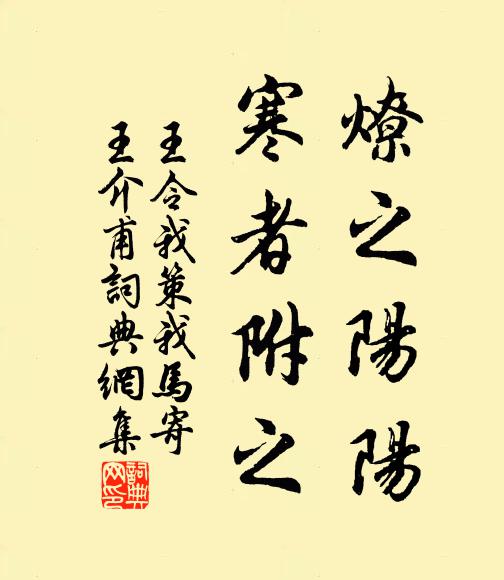 燎之陽陽
寒者附之
王令我策我馬寄
王介甫詞典網集
詞典网印